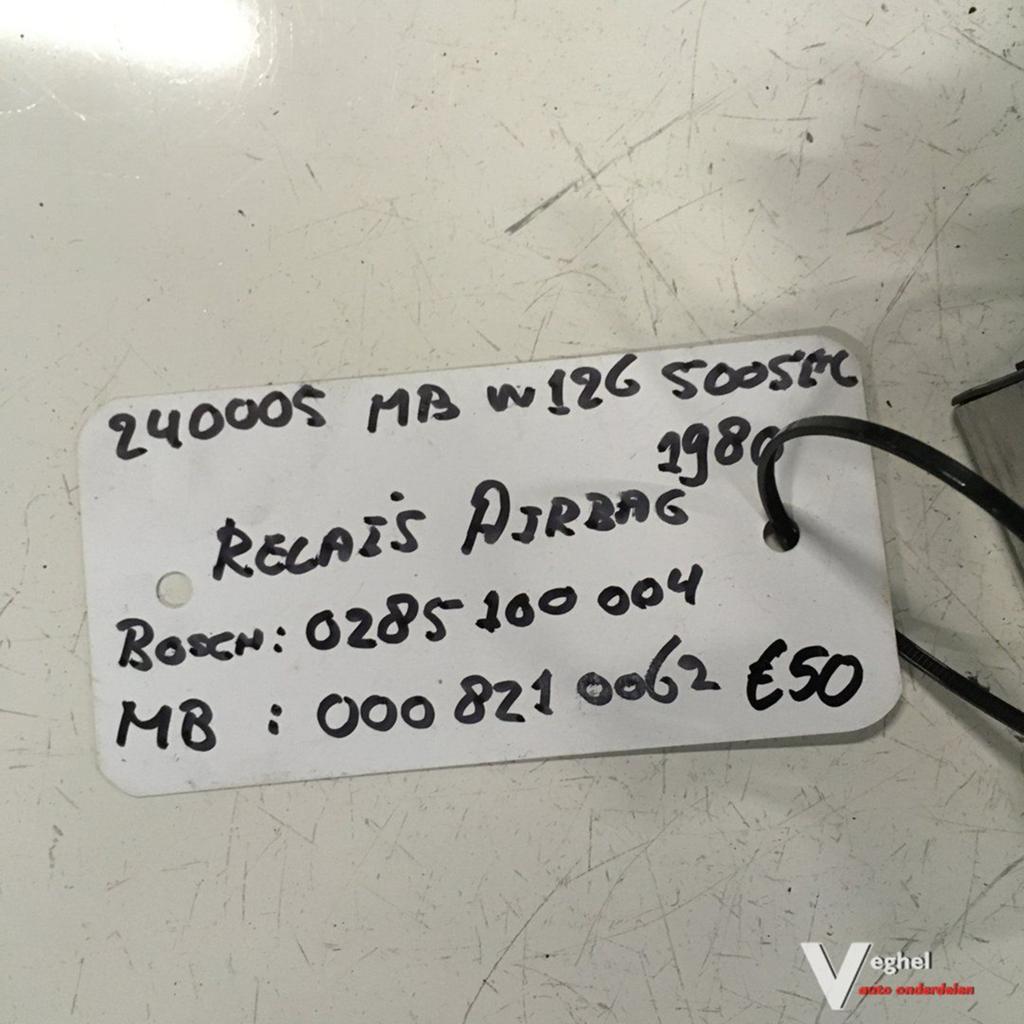 240005 MB W126 500SEC
198
RELAIS AIRBAG
BOSCH: 0285 100 004
MB : 000 821 0062 €50
Veghel
auto onderdelen